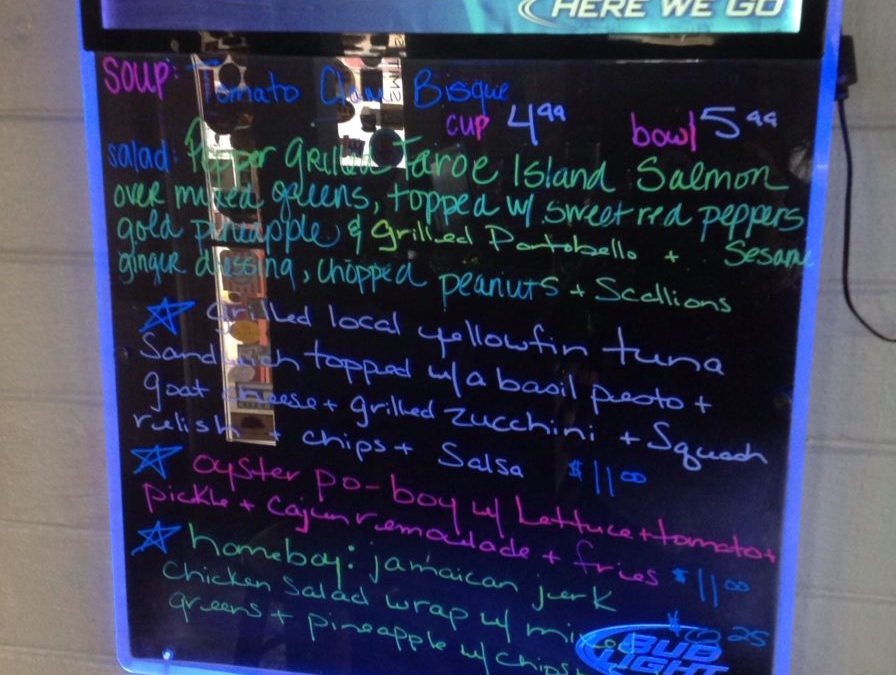 HERE WE GO
soup: Tomato Clam Bisque
cup 4.99 bowl 5.99
salad: Pepper grilled Faroe Island Salmon
over mixed greens, topped w/ sweet red peppers
gold pineapple & grilled Portobello + Sesame
ginger dressing, chopped peanuts + Scallions
grilled local yellowfin tuna
Sandwich topped w/ a basil pesto +
goat cheese + grilled zucchini + Squash
relish + chips + Salsa $11.00
oyster po-boy w/ Lettuce + tomato +
pickle + Cajun remoulade + fries $11.00
homeboy: jamaican jerk
chicken Salad wrap w/ mixed
greens + pineapple w/ chips
BUD
LIGHT